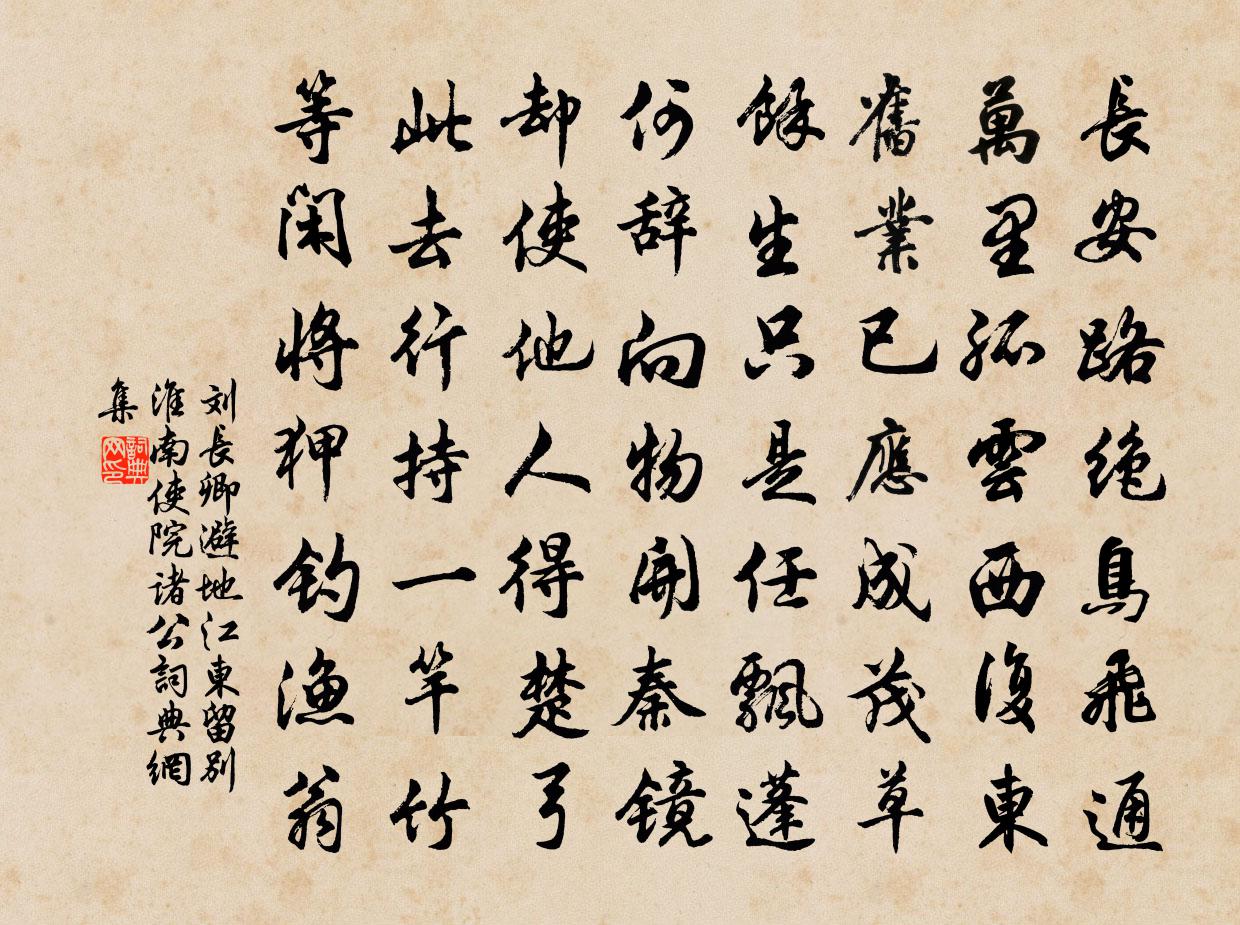 長安路絶鳥飛通
萬里孤雲西復東
舊業已應成茂草
餘生只是任飄蓬
何辞向物開秦镜
却使他人得楚弓
此去行持一竿竹
等閑將狎钓渔翁
刘長卿避地江東留别
淮南使院诸公詞典網
集
詞典
网印